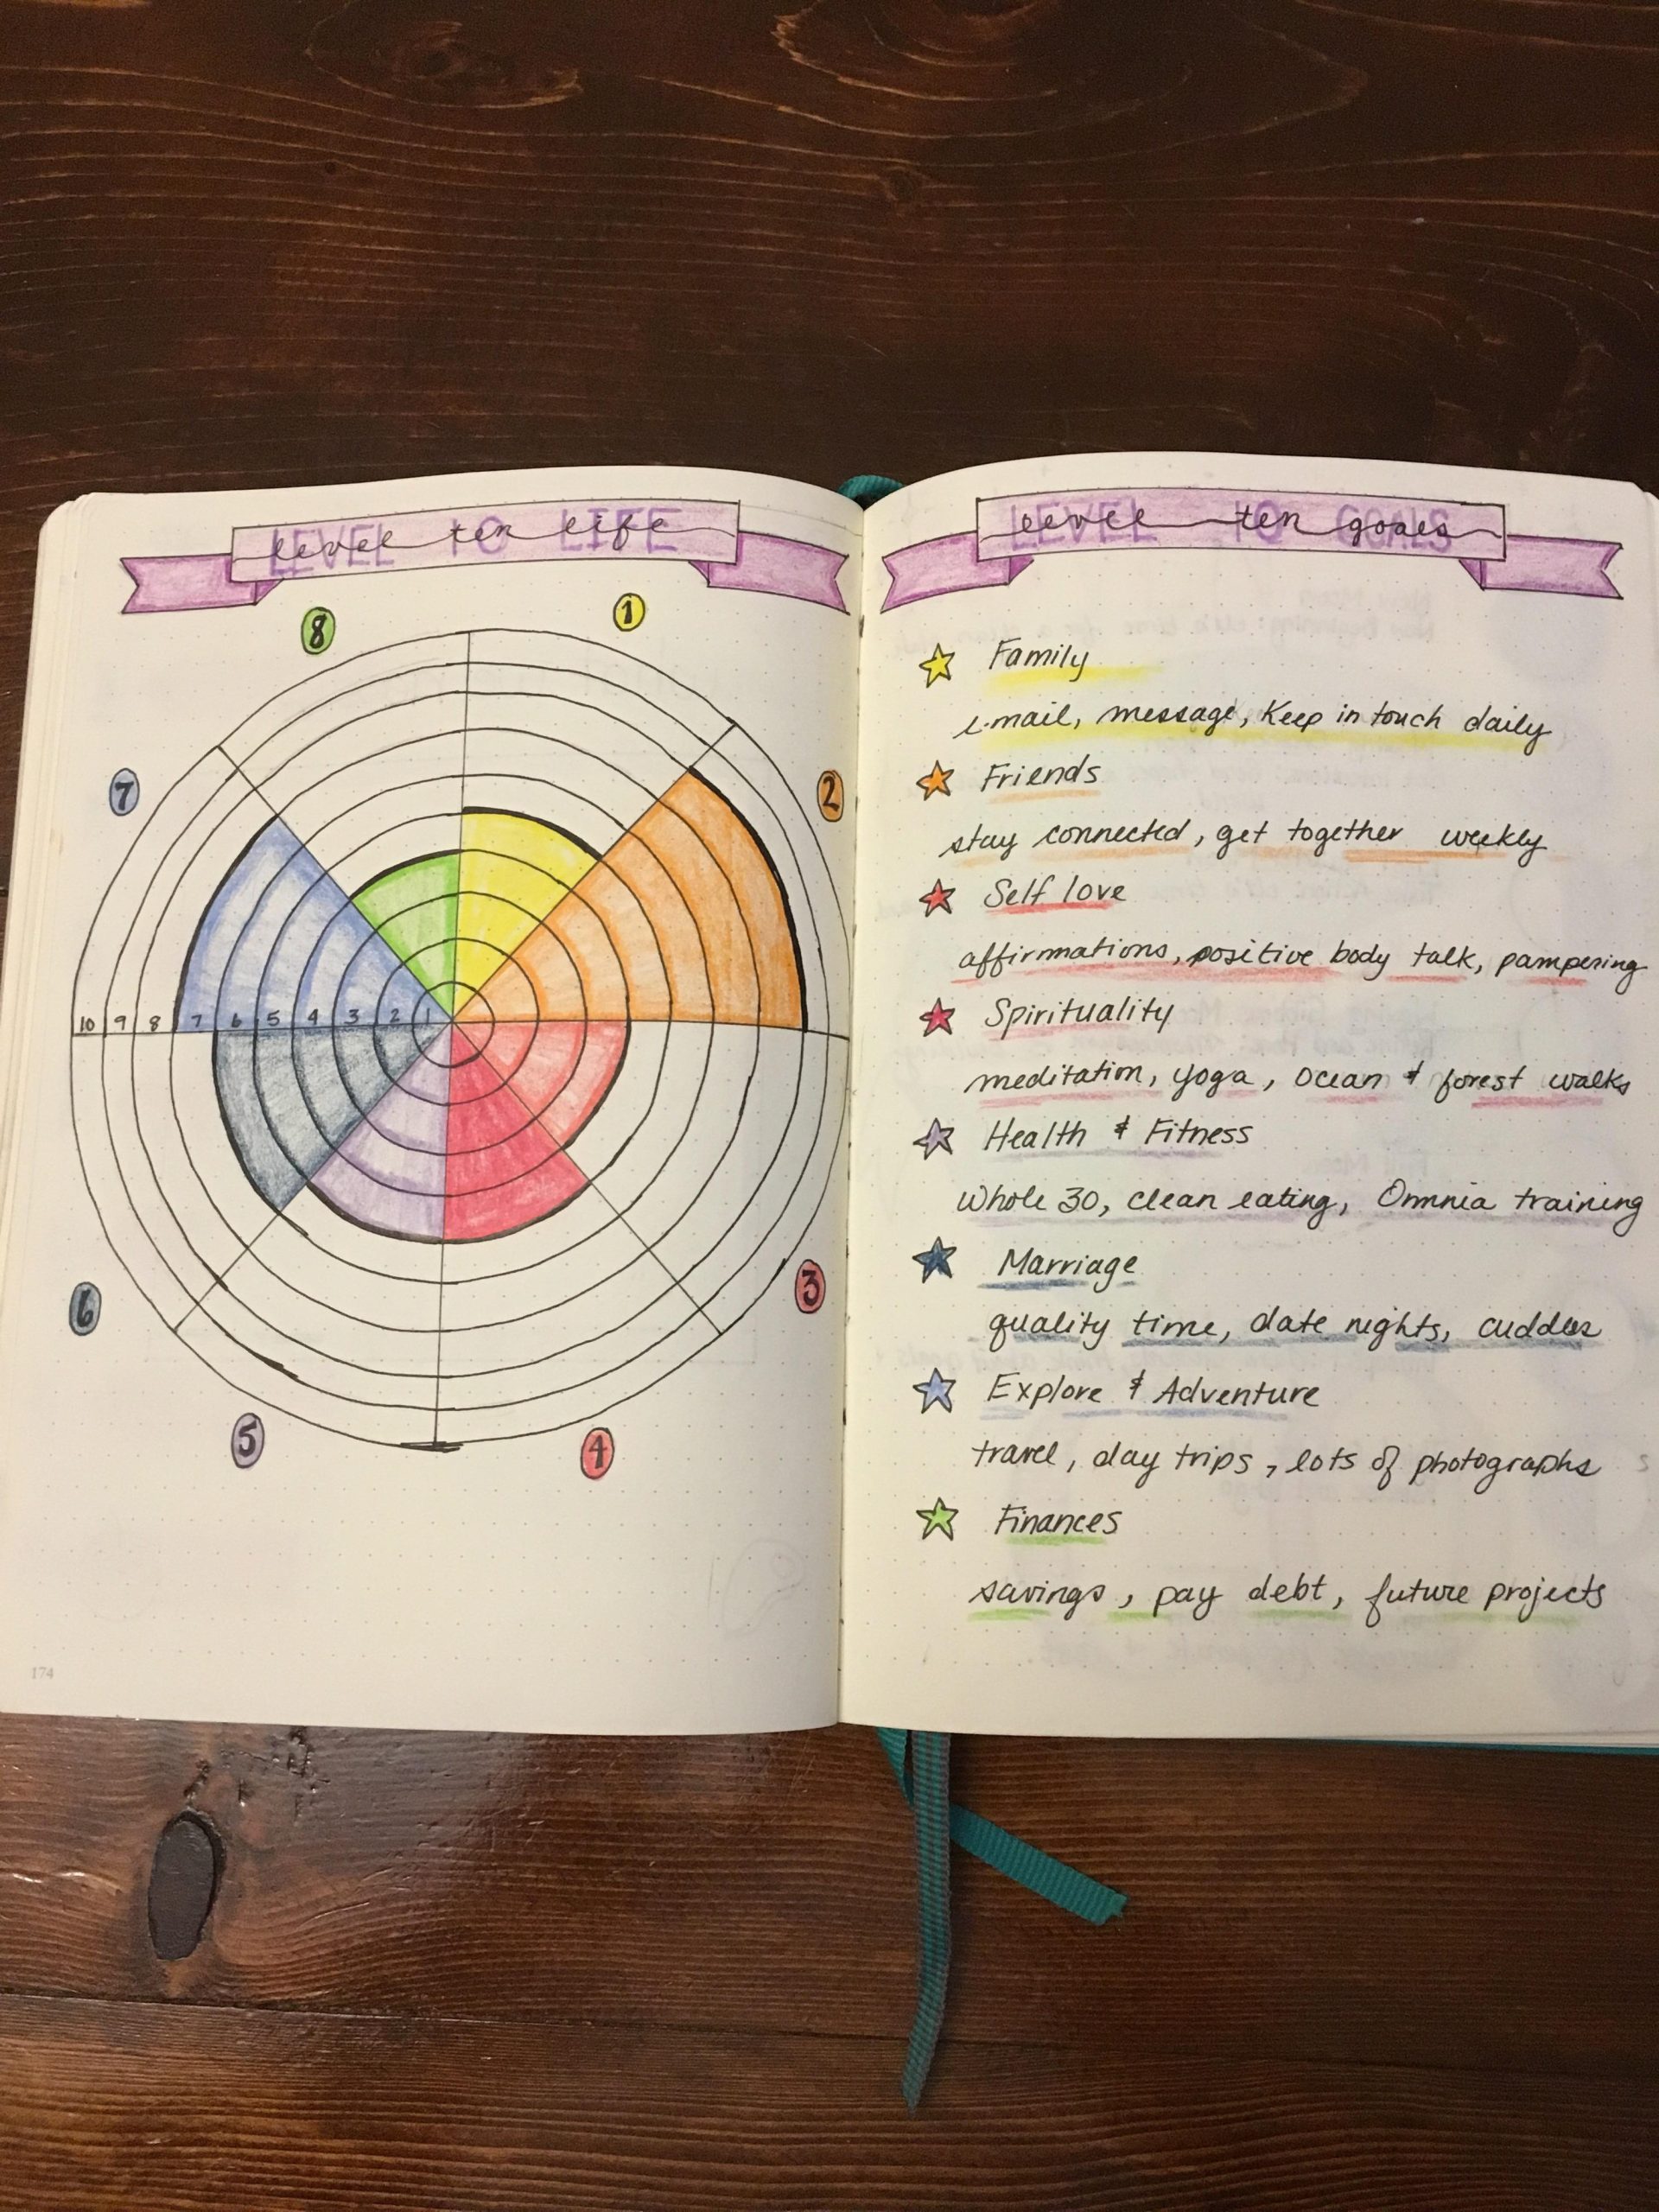 level ten life
LEVEL 10 LIFE
8
1
7
2
10 9 8 7 6 5 4 3 2 1
6
3
5
4
174
level ten goals
LEVEL 10 GOALS
Family
e-mail, message, Keep in touch daily
Friends
stay connected, get together weekly
Self love
affirmations, positive body talk, pampering
Spirituality
meditation, yoga, ocean & forest walks
Health & Fitness
Whole 30, clean eating, Omnia training
Marriage
quality time, date nights,
Explore & Adventure
travel, day trips, lots of photographs
Finances
savings, pay debt, future projects